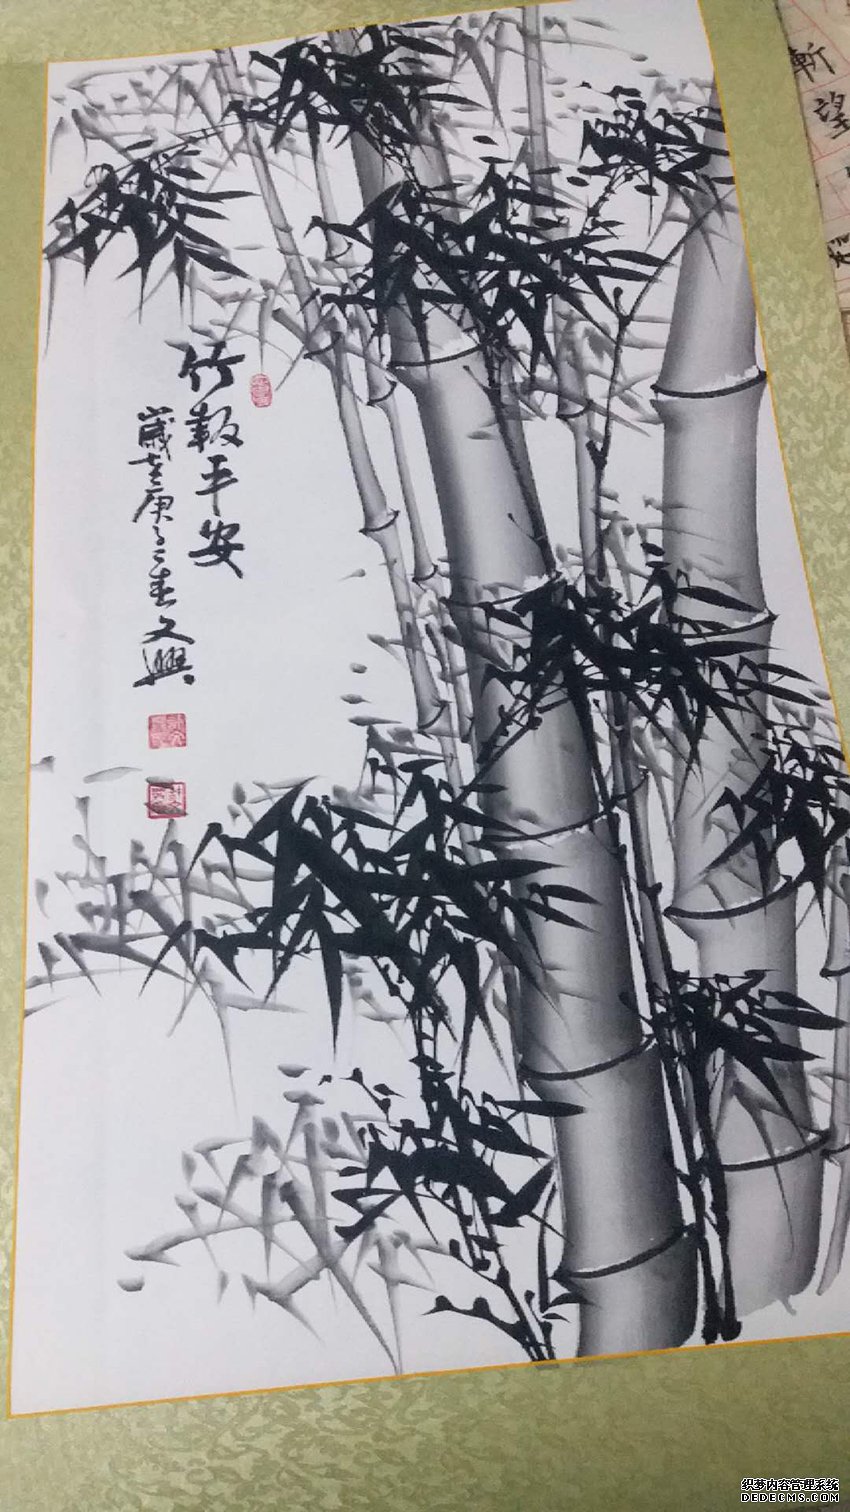 竹報平安
歲在庚子之春文興
斬
望
织梦内容管理系统
DEDECMS.COM